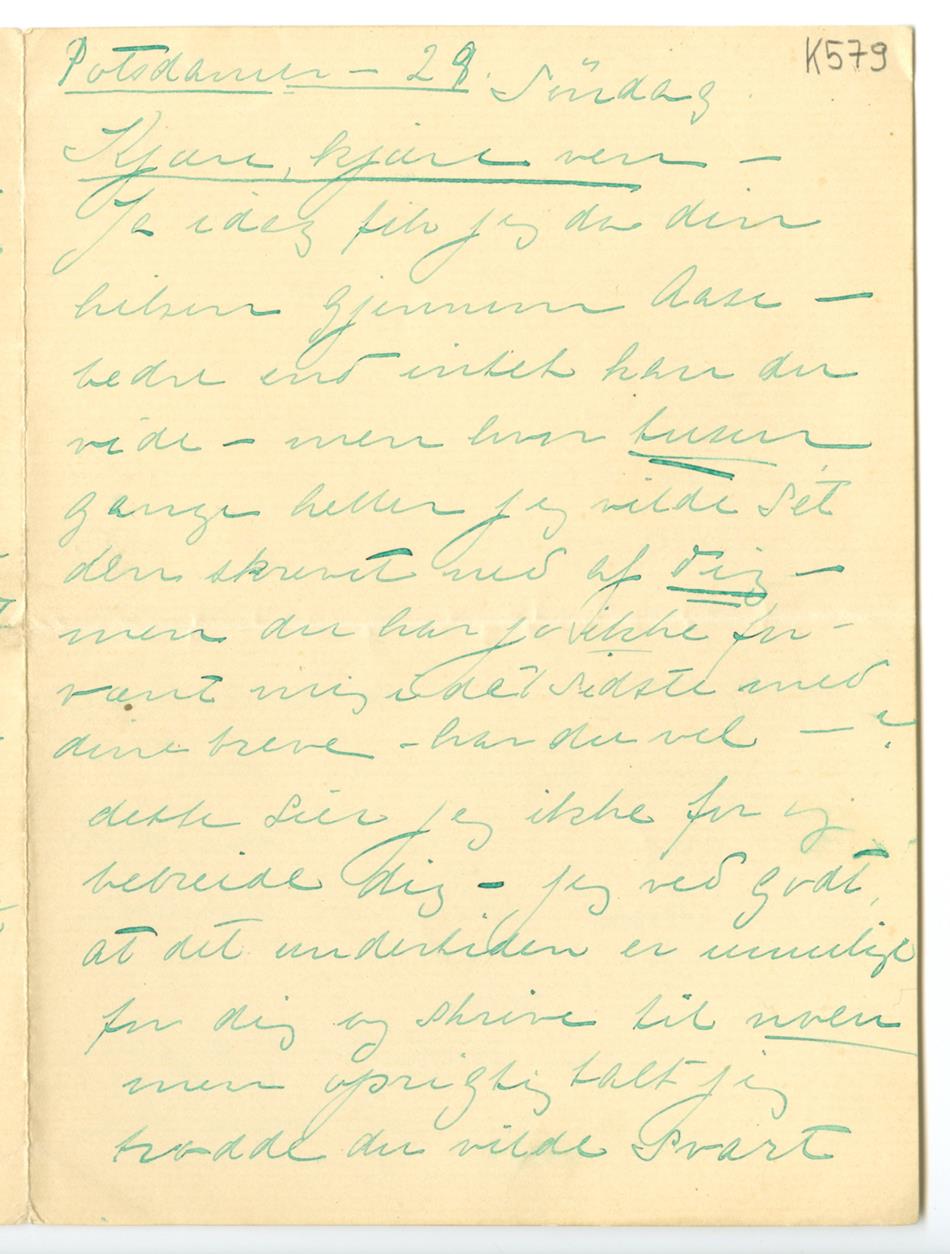 K579
Potsdamer – 29. Söndag
Kjære, kjære ven –
Ja idag fik jeg da din
hilsen gjennem Aase –
bedre end intet kan du
vide – men hvor tusen
gange heller jeg vilde sét
den skrevet ned af dig –
men du har jo ikke for-
vænt mig i det sidste med
dine breve – har du vel – ?
dette siër jeg ikke for og
bebreide dig – jeg ved godt,
at det undertiden er umuligt
for dig og skrive til noen
men oprigtig talt jeg
trodde du vilde svart